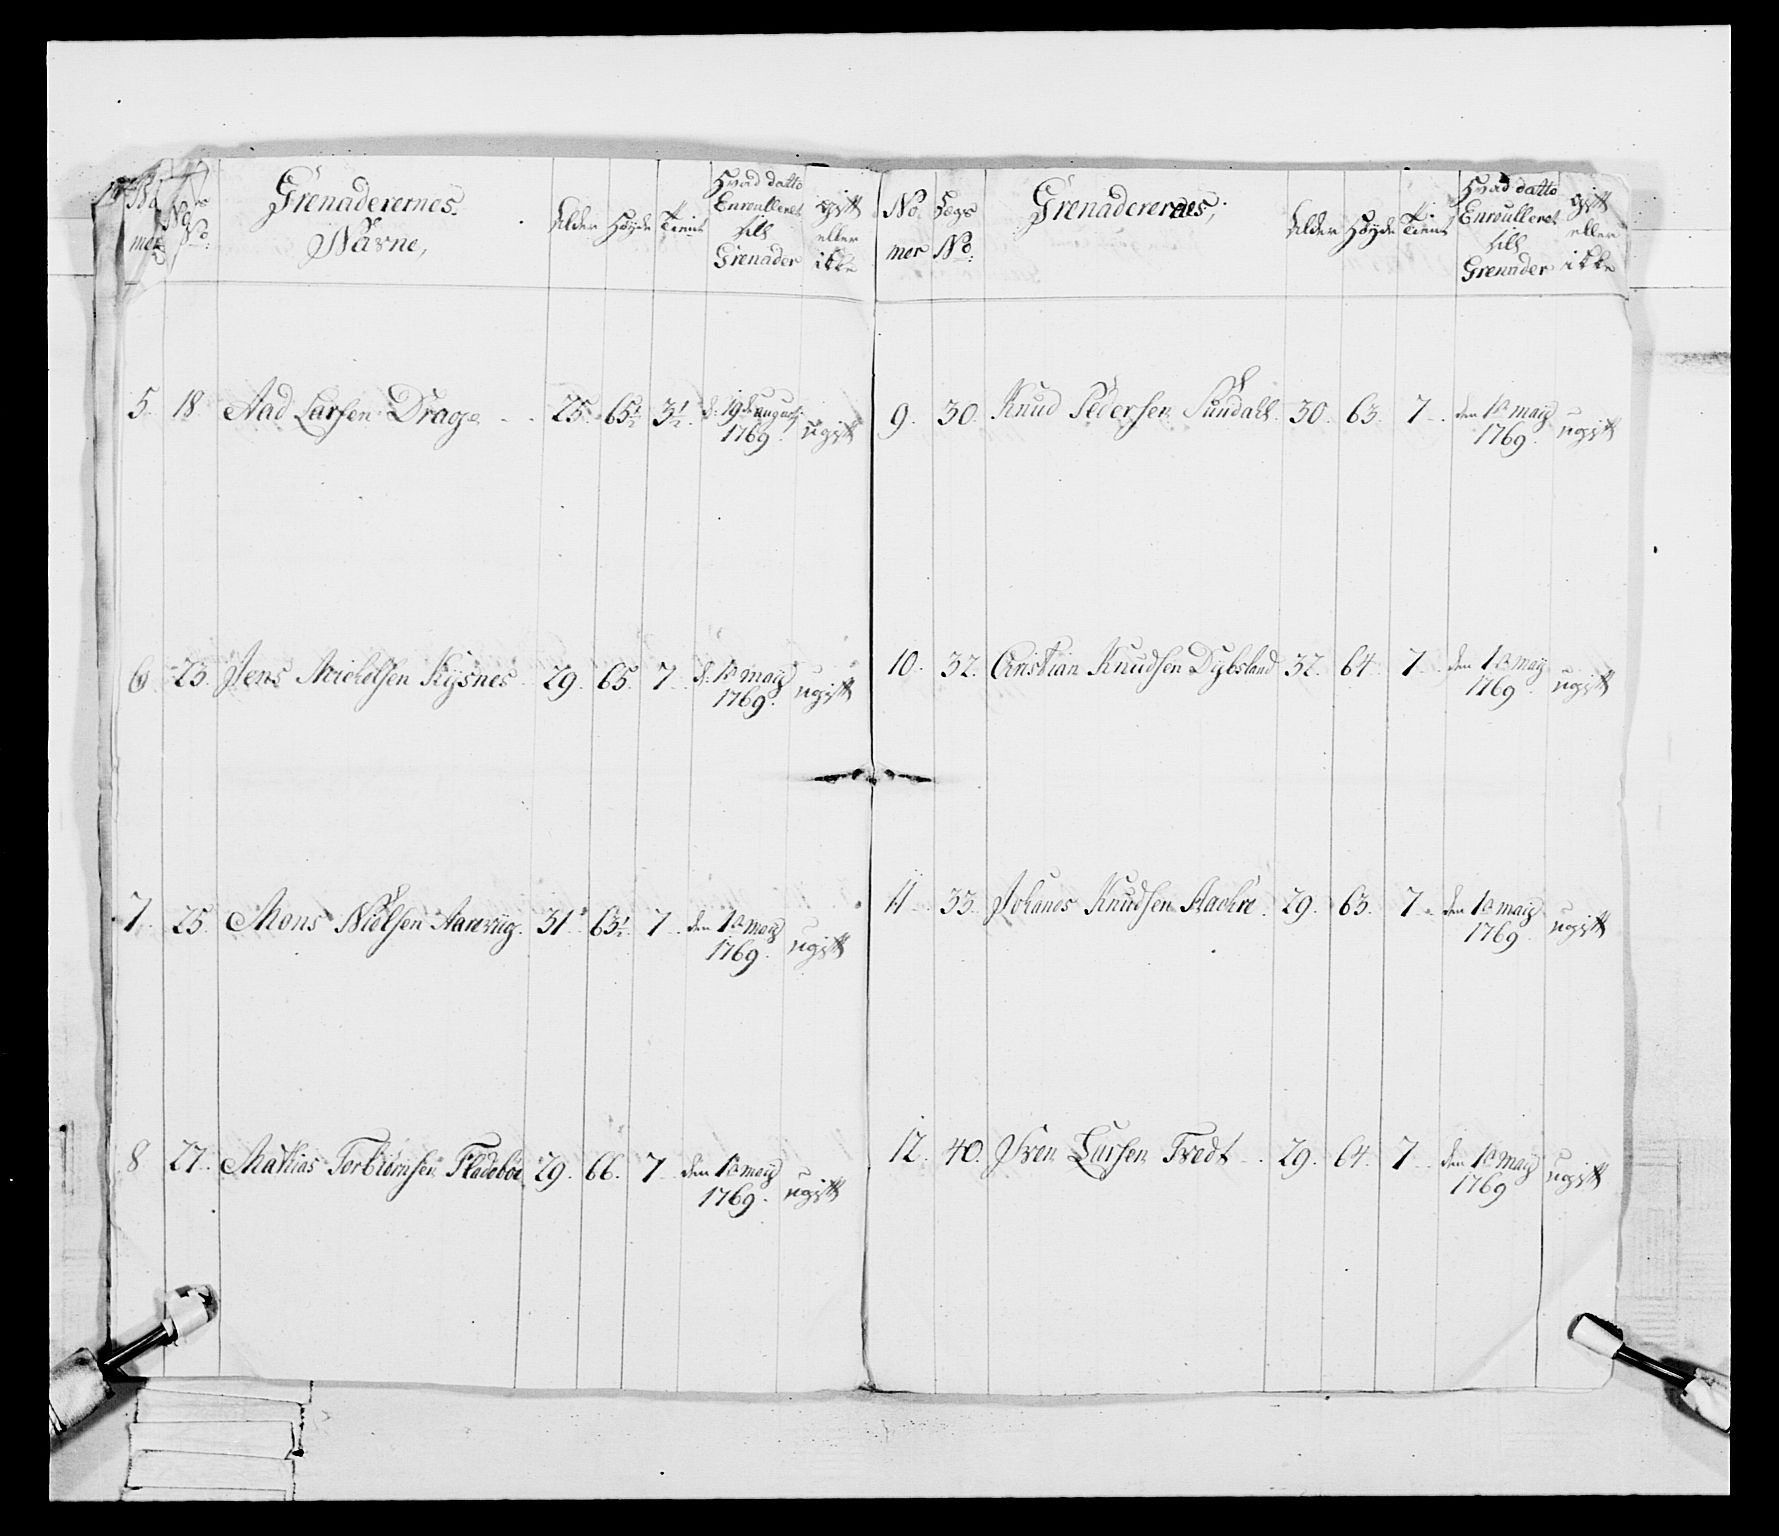 Grenaderernes
Navne,
Alder Høyde Tient
Hvad datto
Enroulleret
till
Grenader
gift
eller
ikke
5. 18. Aad Larsen Drage 25. 65½ 3½. d: 19d augusti 1769. ugift
6. 23. Jens Michelsen Kysnes 29. 65. 7. d. 1a maij 1769. ugift
7. 25. Mons Nielsen Aarevig. 31. 63½. 7. den 1a maij 1769. ugift
8 27. Mathias Torbiørnsen Fladebøe 29. 66. 7. den 1a maij 1769. ugift
No. mer
Lægs No:
Grenaderernes,
Alder Høyde Tient
Hvad datto
Enroulleret
till
Grenader
gift
eller
ikke
9. 30. Knud Pedersen Sundahl. 30. 63. 7. den 1a maij 1769. ugift
10. 32. Christian Knudsen Dybsland 32. 64. 7. den 1a maij 1769. ugift
11. 33. Johanes Knudsen Aachre. 29. 63. 7. den 1a maij 1769. ugift
12. 40. Iver Larsen Tvedt. 29. 64. 7. den 1a maij 1769 ugift